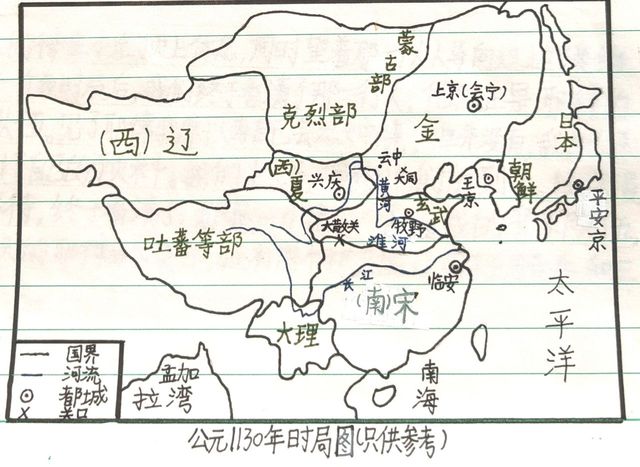 蒙古部
上京(会宁)
克烈部
金
日本
(西)辽
云中
大同
(西)夏
兴庆
黄河
玄武
王京
朝鲜
平安京
大散关
牧野
淮河
吐蕃等部
长江
临安
(南)宋
太平洋
大理
国界
河流
都城
关口
孟加拉湾
南海
公元1130年时局图(只供参考)